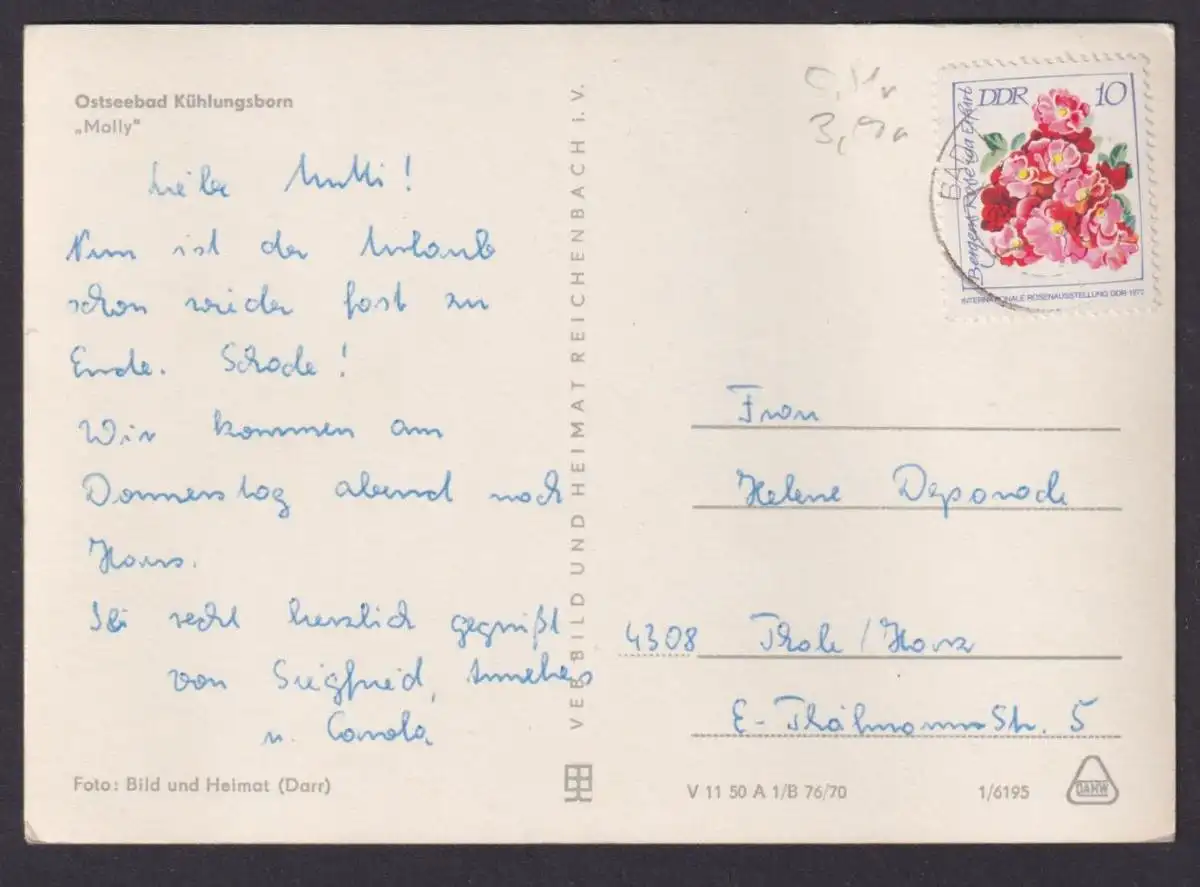 Ostseebad Kühlungsborn
„Molly"
Liebe Mutti!
Nun ist der Urlaub
schon wieder fast zu
Ende. Schade!
Wir kommen am
Donnerstag abend nach
Haus.
Sei recht herzlich gegrüßt
von Siegfried, Annelies
u. Carola
Foto: Bild und Heimat (Darr)
VEB BILD UND HEIMAT REICHENBACH i. V.
DDR 10
Bergers Rose iga Erfurt
INTERNATIONALE ROSENAUSSTELLUNG DDR 1972
BAD
Frau
Helene
4308 Thale/Harz
E-Thälmann Str. 5
V 11 50 A 1/B 76/70
1/6195
DAHW